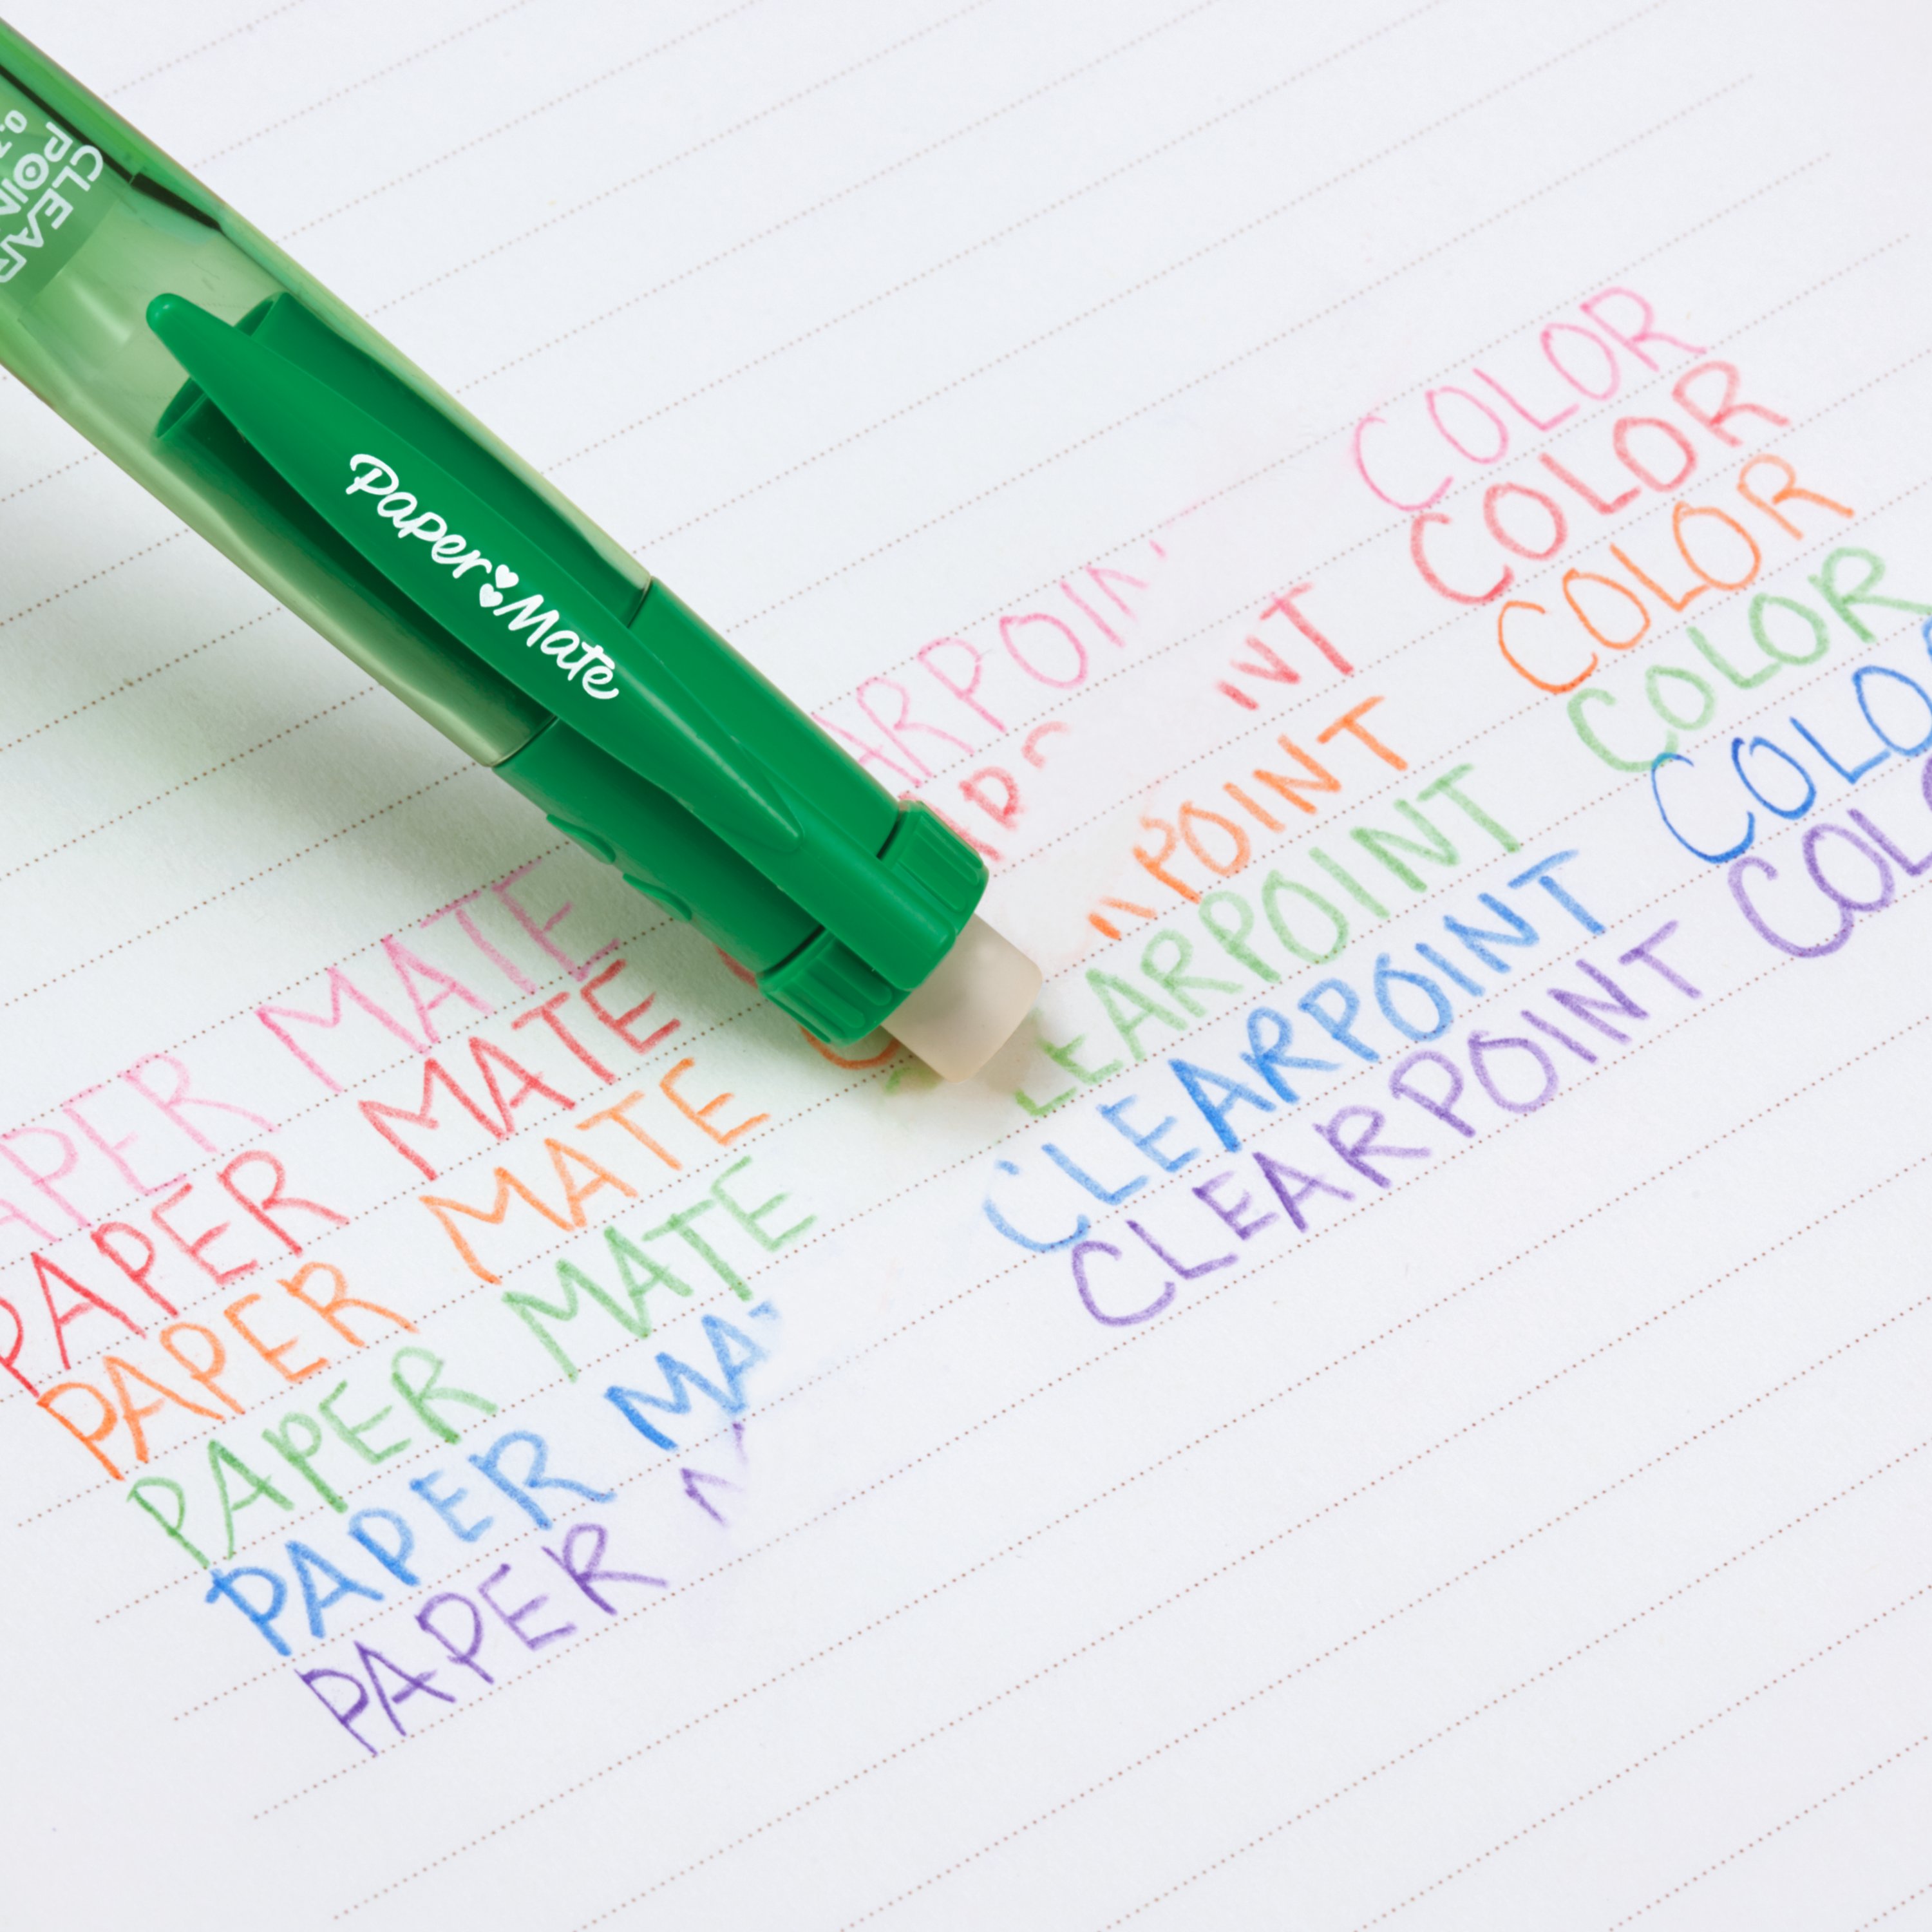 CLEAR
POINT
0.7
Paper Mate
APER MATE ARPOIN COLOR
PAPER MATE AR INT COLOR
PAPER MATE POINT COLOR
PAPER MATE LEARPOINT COLOR
PAPER MA CLEARPOINT COLO
PAPER CLEARPOINT COL